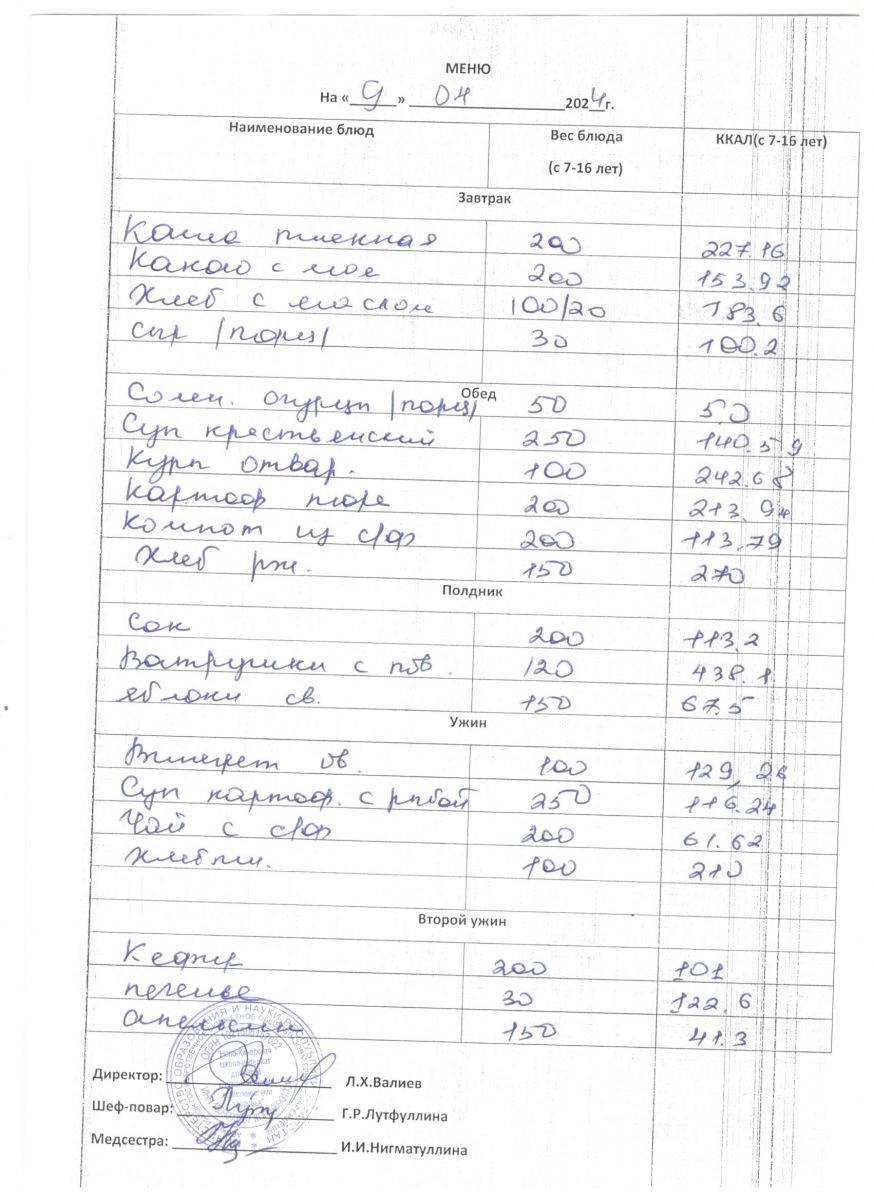 МЕНЮ
На «9» 04 2024г.
Наименование блюд Вес блюда (с 7-16 лет) ККАЛ(с 7-16 лет)
Завтрак
Каша пшенная 200 227.16
Какао с мол 200 153.92
Хлеб с маслом 100/20 183.6
сыр /порц/ 30 100.2
Обед
Солен. огурцы /порц/ 50 5,0
Суп крестьенский 250 140.59
Куры отвар. 100 242.68
Картоф пюре 200 213.94
Компот из с/ф 200 113.79
Хлеб рж. 150 270
Полдник
Сок 200 113.2
Ватрушки с тв. 120 438.1
яблоки св. 150 67.5
Ужин
Винегрет ов. 100 129,26
Суп картоф. с рыбой 250 116.24
Чай с с/ф 200 61.62
Хлеб пш. 100 210
Второй ужин
Кефир 200 101
печенье 30 122.6
апельсин 150 41.3
Директор: Л.Х.Валиев
Шеф-повар: Г.Р.Лутфуллина
Медсестра: И.И.Нигматуллина